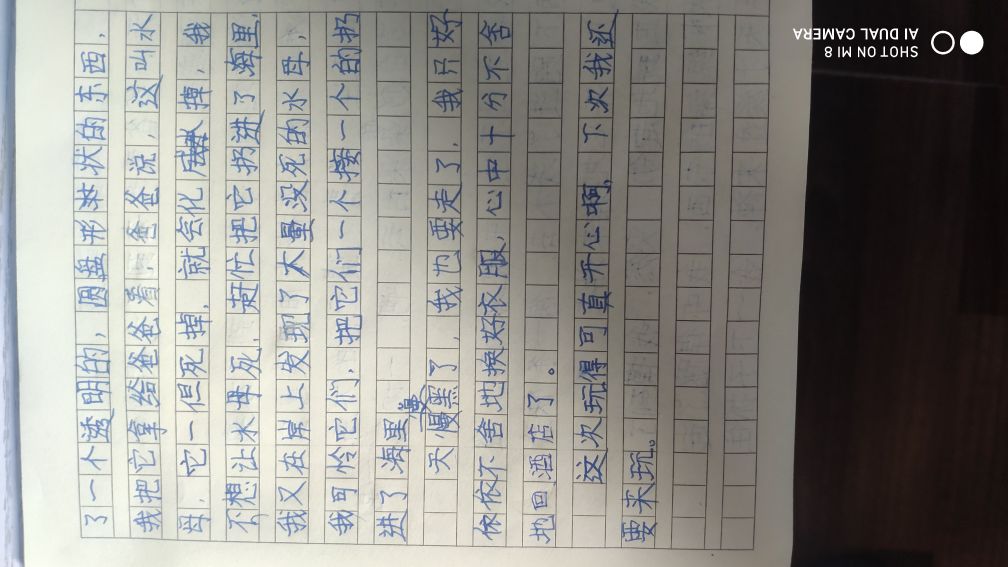 了一个透明的，圆盘形状的东西，
我把它拿给爸爸看，爸爸说，这叫水
母，它一但死掉，就会化成水掉，我
不想让水母死，赶忙把它扔进了海里，
我又在岸上发现了大量没死的水母，
我可怜它们，把它们一个接一个的扔
进了海里
天慢慢黑了，我也要走了，我只好
依依不舍地换好衣服，心中十分不舍
地回酒店了。
这次玩得可真开心啊，下次我还
要来玩。
SHOT ON MI 8
AI DUAL CAMERA